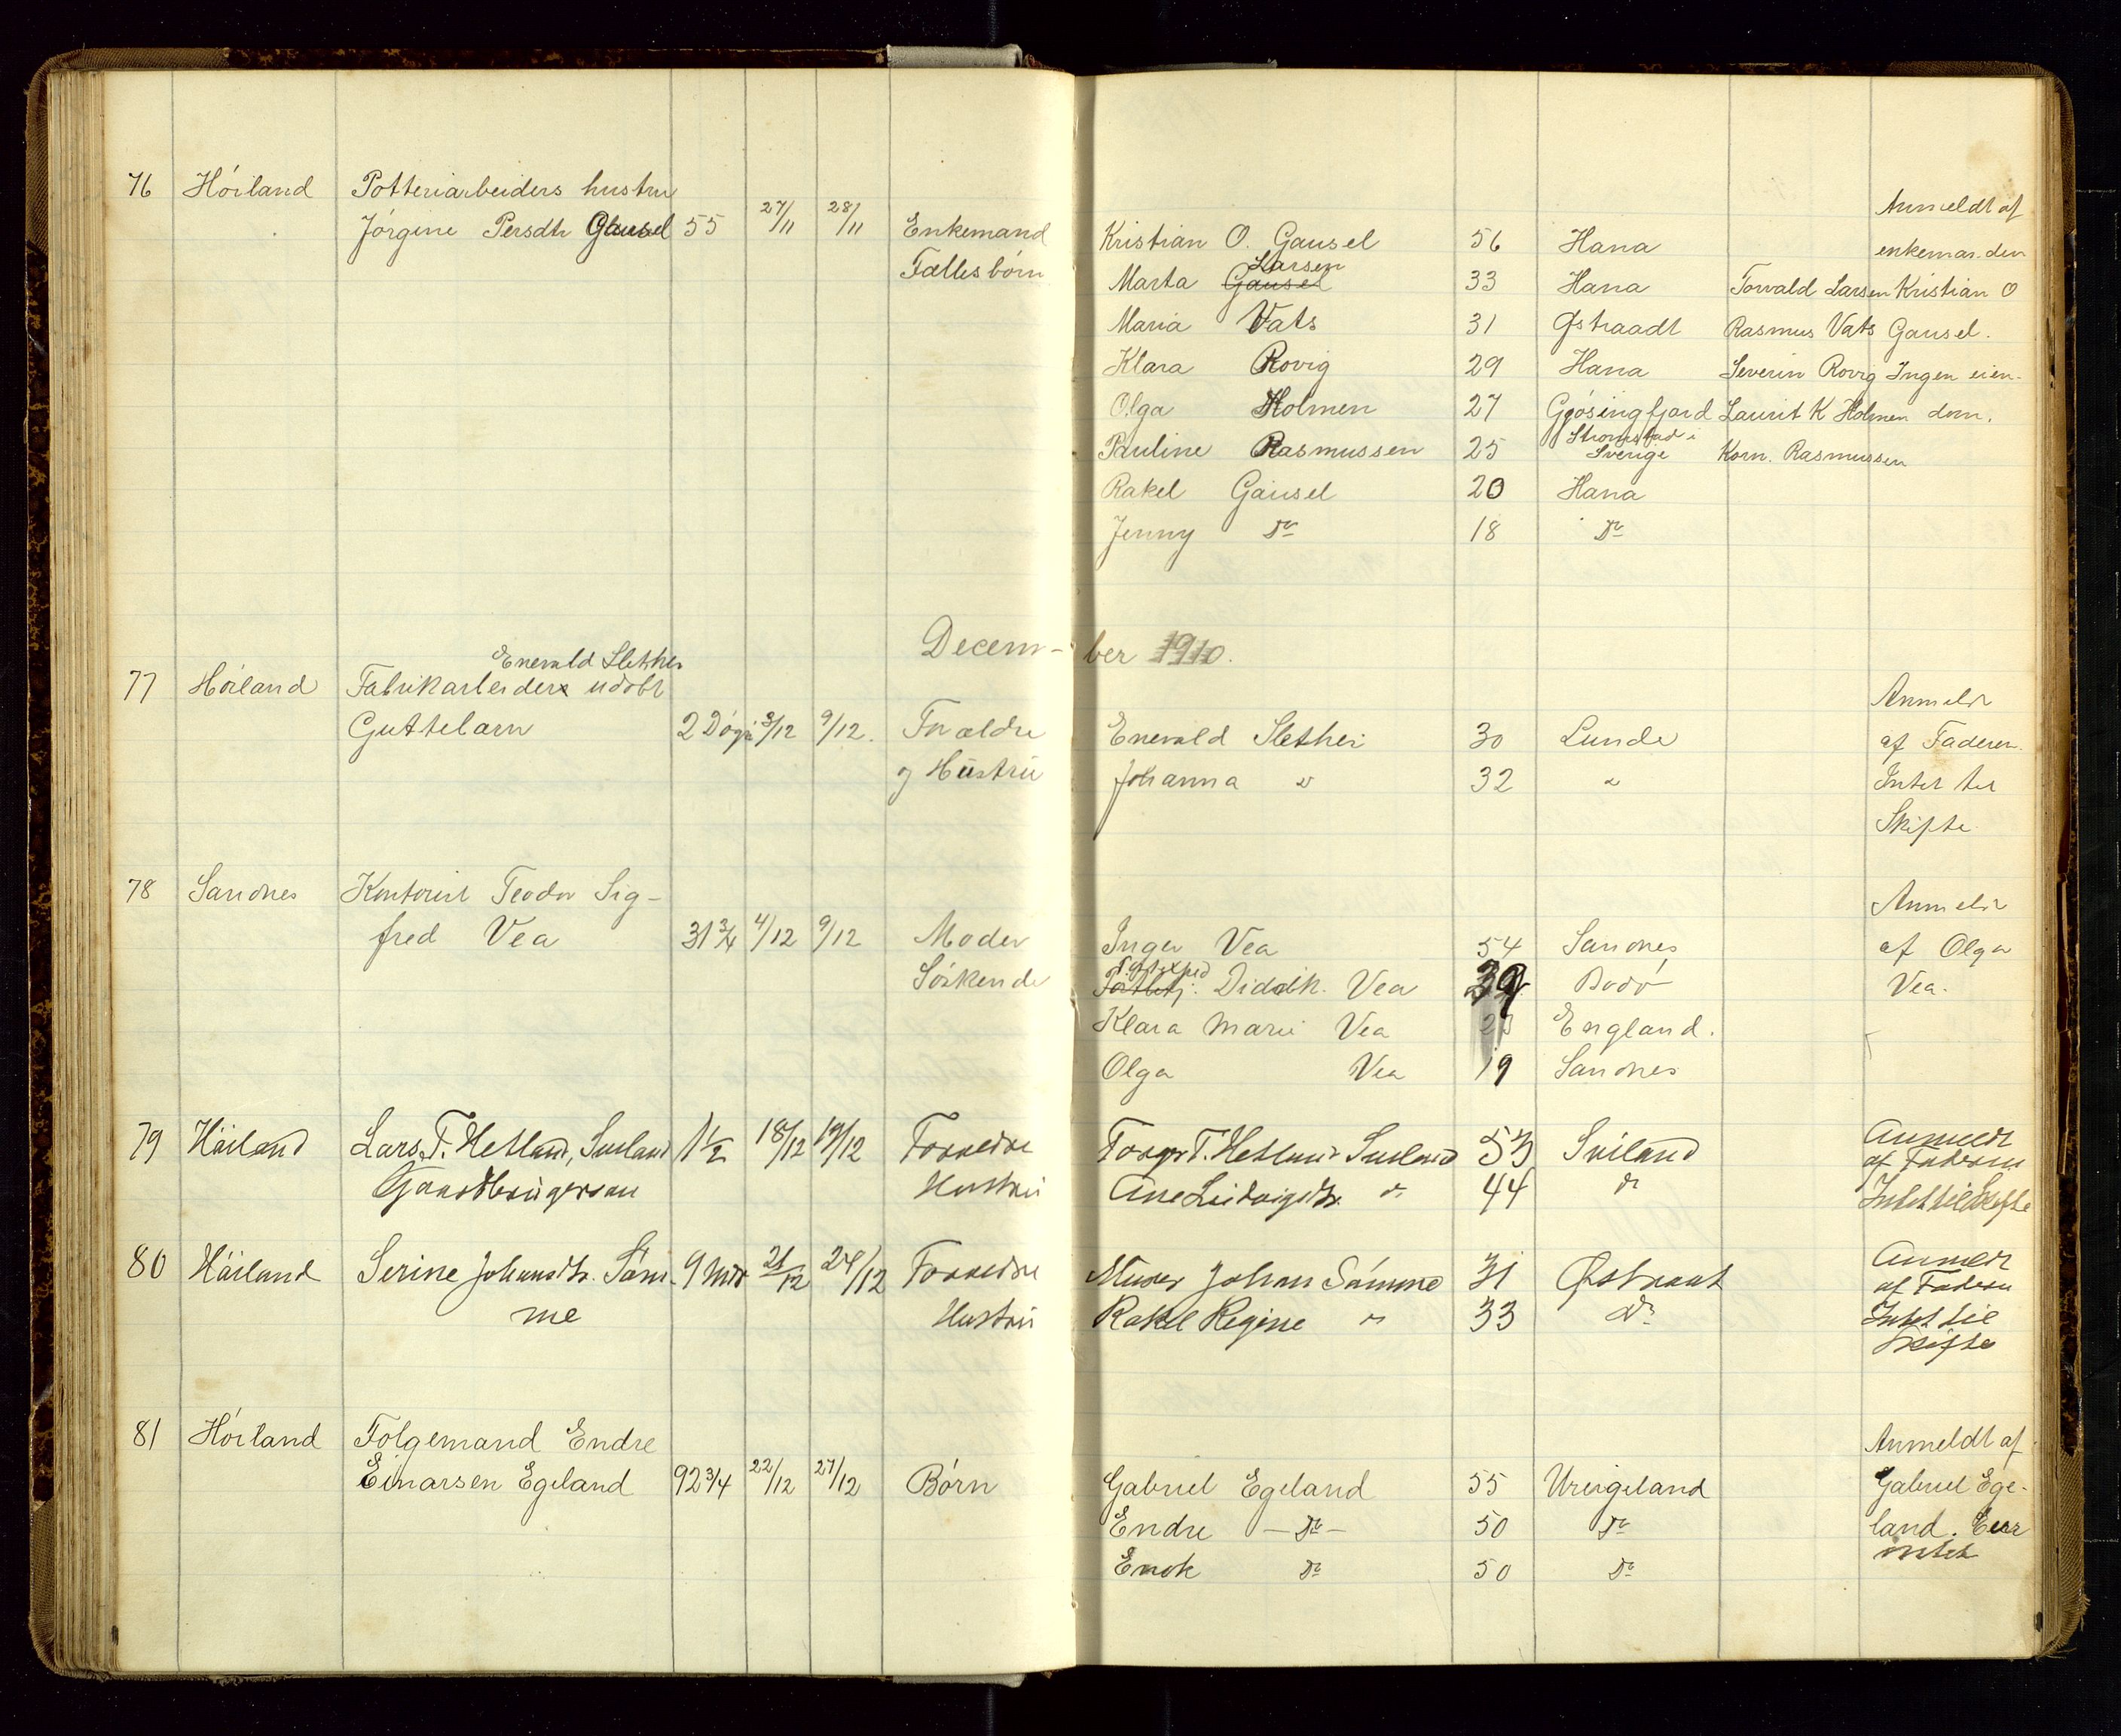 Anmeldt af
76 Höiland Potteriarbeiders hustru
Jörgine Persdtr Gausel 55 27/11 28/11 Enkemand Kristian O. Gausel 56 Hana enkemanden
Fællesbörn Marta Gausel Larsen 33 Hana Torvald Larsen Kristian O
Maria Vats 31 Østraadt Rasmus Vats Gausel.
Klara Rovig 29 Hana Severin Rovig Ingen eien-
Olga Holmen 27 Gjösingfjord Laurit K Holmen dom.
Pauline Rasmussen 25 Strömstad i Sverige Korn. Rasmussen
Rakel Gausel 20 Hana
Jenny Do 18 Do
Decem- ber 1910.
Enevald Slethei
77 Höiland Fabrikarbeider udöbt Anmeldt
Guttebarn 2 Dögn 8/12 9/12. Forældre Enevald Slethei 30 Lunde af Faderen.
og Hustru Johanna " 32 " Intet til
Skifte
78 Sandnes Kontorist Teodor Sig- Anmeldt
fred Vea 31 3/4 4/12 9/12 Moder Inger Vea 54 Sandnes af Olga
Söskende Postbetj. Didrik. Vea 39 Bodö Vea.
Klara Marie Vea England.
Olga Vea 19 Sandnes
79 Höiland Lars T. Hetland, Sviland 1 1/2 18/12 19/12 Forældre Torger T. Hetland Sviland 53 Sviland Anmeldt af Faderen
Gaardbrugersøn Hustru Ane Ludvigsdtr. do 44 do Intet til Skifte
80 Höiland Serine Johansdtr. Söm- 9 Mdr 21/12 24/12 Forældre Murer Johan Sömme 31 Østraat Anmeldt af Faderen
me Hustru Rakel Regine " 33 Do Intet til
Skifte
81 Höiland Folgemand Endre Anmeldt af
Einarsen Egeland 92 3/4 22/12 27/12 Börn Gabriel Egeland 55 Ureigeland Gabriel Ege-
Endre - Do - 50 Do land. Eier
Enok Do 50 Do intet